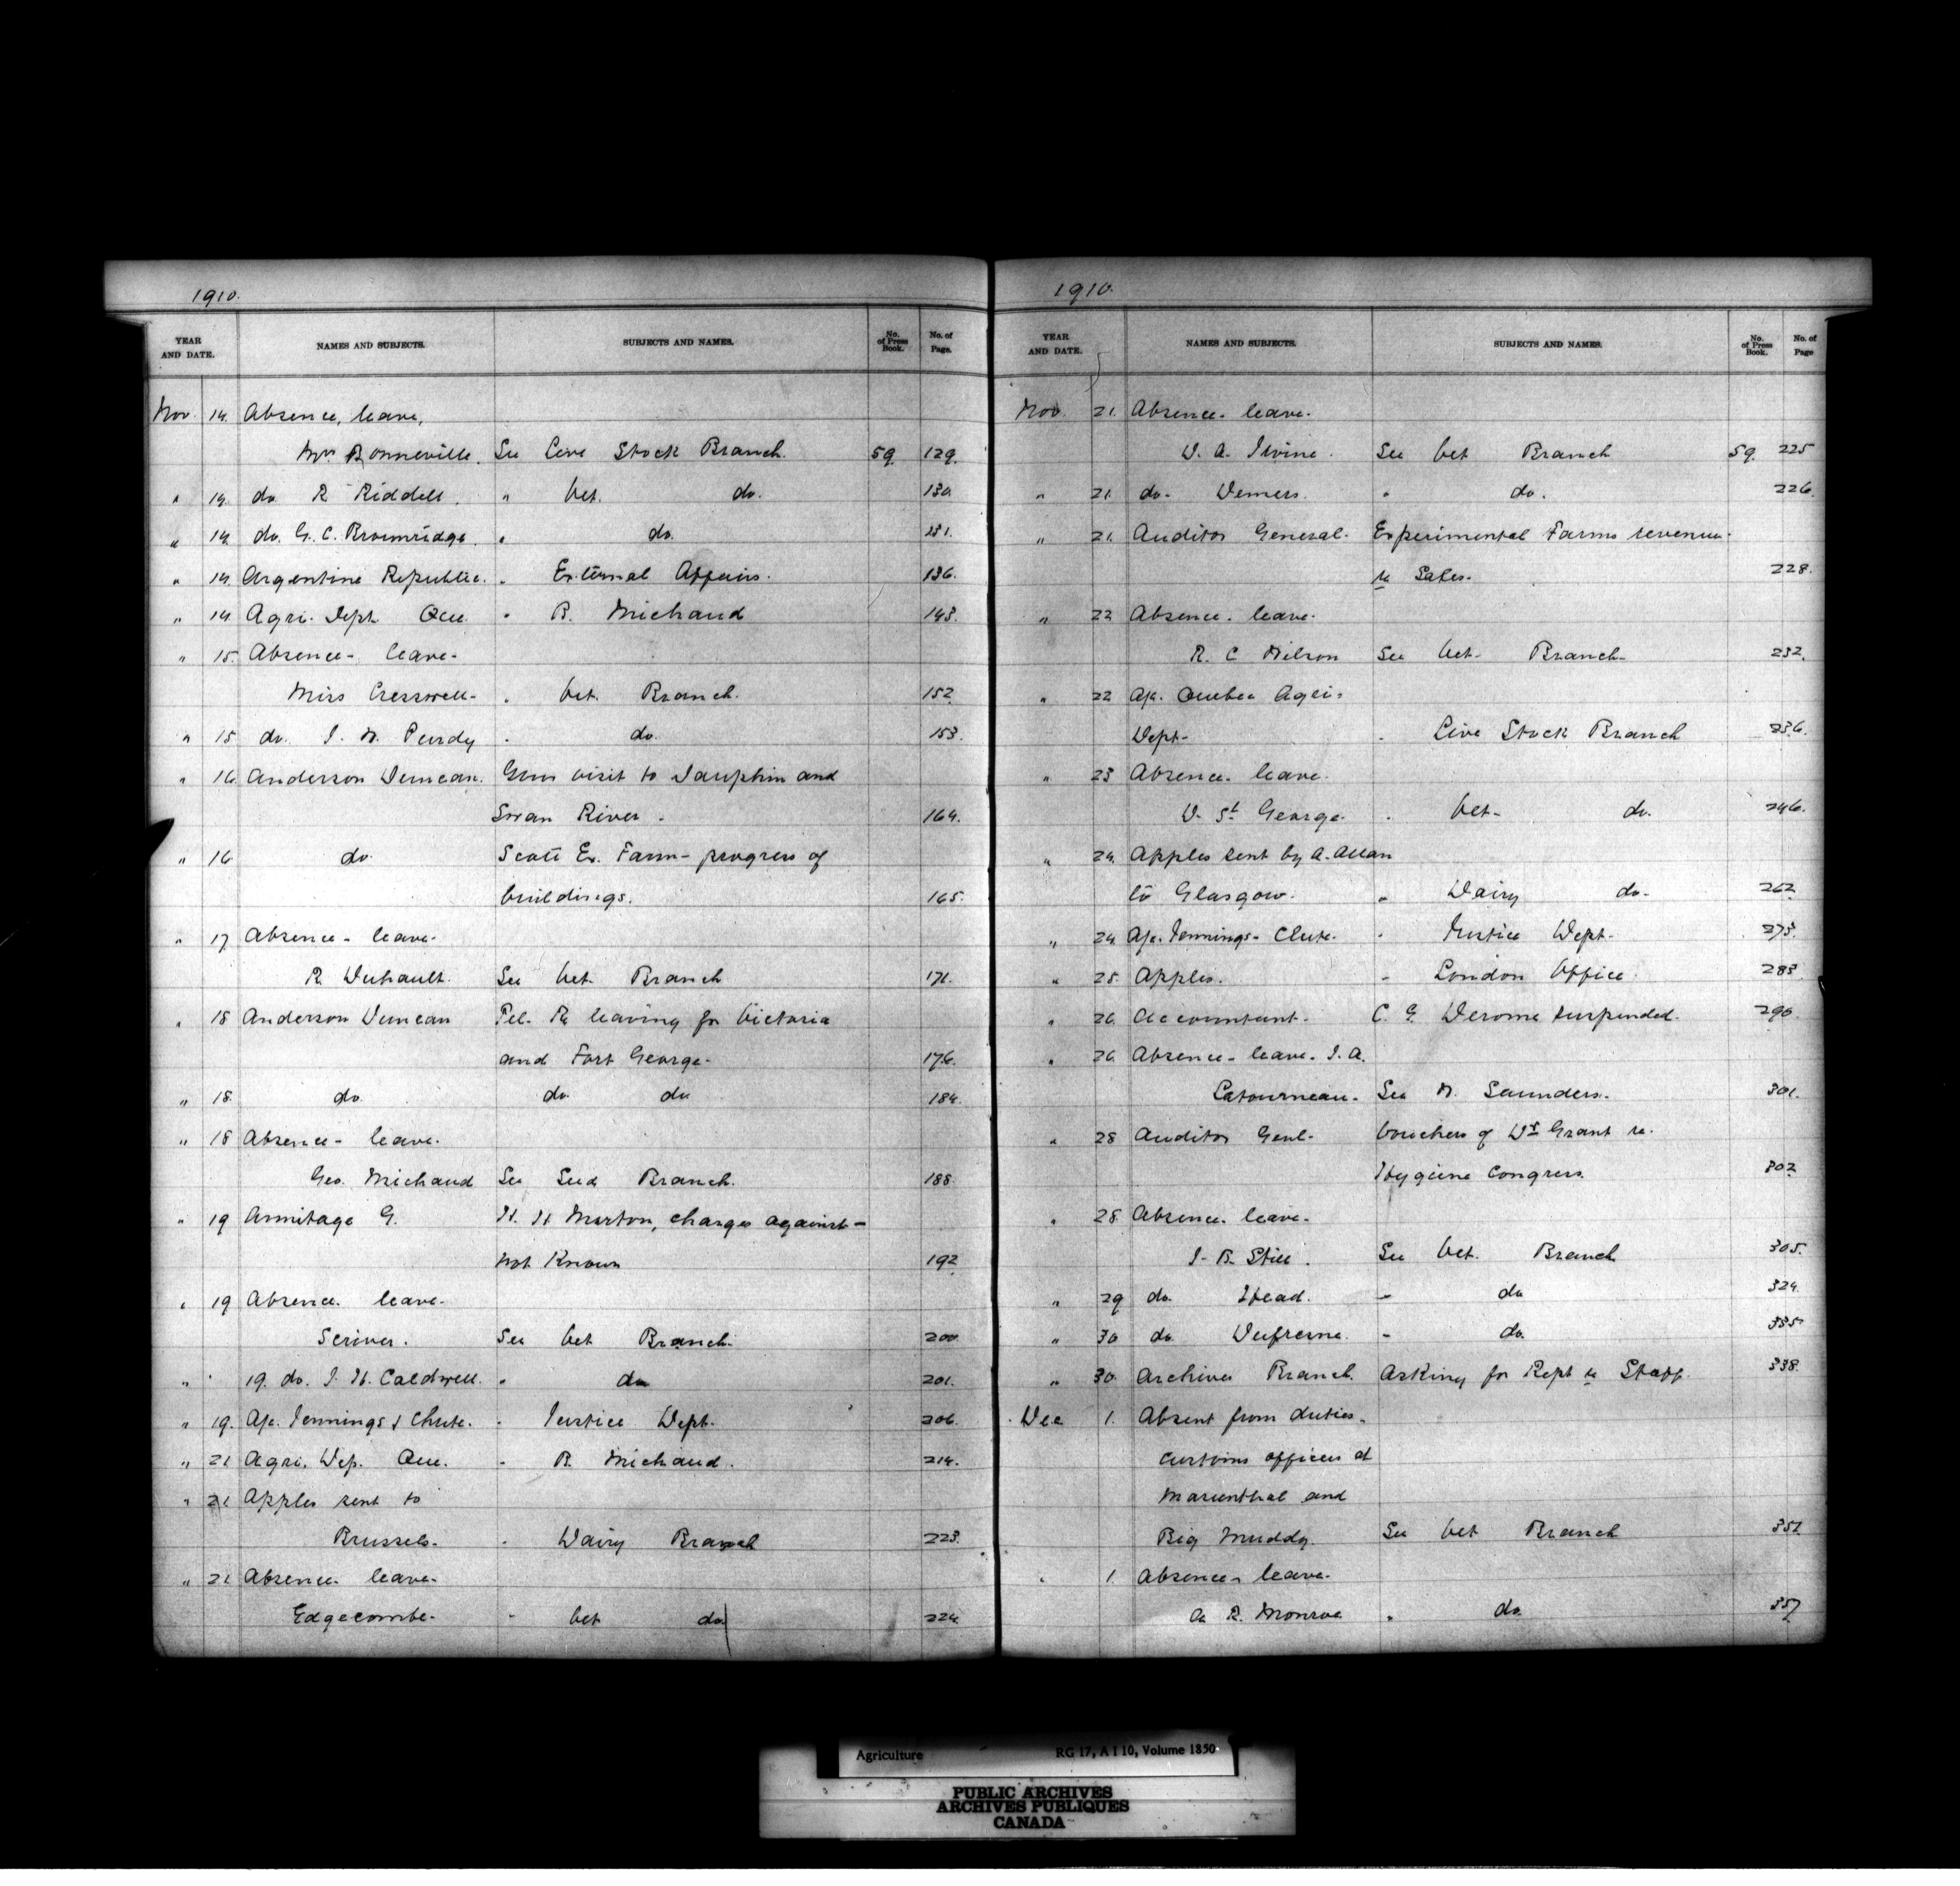 1910.
YEAR AND DATE. NAMES AND SUBJECTS. SUBJECTS AND NAMES. No. of Press Book. No. of Page.
Nov. 14. Absence, leave,
Bonneville. See Live Stock Branch. 59. 129.
" 14. do R Riddell. " Vet. do. 130.
" 14. do. G. C. Bromridge. " do. 131.
" 14. Argentine Republic. " External Affairs. 136.
" 14. Agri. Dept Que. " R. Michaud 143.
" 15. Absence - leave -
Miss Cresswell - " Vet. Branch. 152.
" 15 do. J. W. Purdy " do. 153.
" 16. Anderson Duncan. visit to Dauphin and
Swan River. 164.
" 16 do. Scott Ex. Farm - progress of
buildings. 165.
" 17 Absence - leave -
R. Duhault. See Vet. Branch 171.
" 18 Anderson Duncan Tel. Re leaving for Victoria
and Fort George - 176.
" 18. do. do. do 184.
" 18 Absence - leave.
Geo. Michaud See Seed Branch. 188.
" 19 Armitage G. H. H Marton, charges against -
not Known 192
" 19 Absence. leave -
Scriver. See Vet Branch. 200.
" 19. do. J. H. Caldwell. " do 201.
" 19. A/c. Jennings & Chute. " Justice Dept. 206.
" 21 Agri. Dep. Que. " R. Michaud. 214.
" 21 Apples sent to
Brussels. " Dairy Branch 223.
" 21 Absence - leave -
Edgecombe - " Vet do. 224.
1910.
YEAR AND DATE. NAMES AND SUBJECTS. SUBJECTS AND NAMES. No. of Press Book. No. of Page
Nov. 21. Absence - leave -
D. A. Irvine. See Vet Branch 59. 225
" 21. do - Demers. " do. 226.
" 21. Auditor General - Experimental Farms revenue -
re Sales - 228.
" 22 Absence. leave -
R. C Wilson See Vet - Branch - 232.
" 22 A/c. Quebec Agri -
Dept - " Live Stock Branch 236.
" 23 Absence - leave.
D. St George. " Vet - do. 246.
" 24. Apples sent by A. Allan
to Glasgow. " Dairy do - 262.
" 24. A/c. Jennings - Chute. " Justice Dept - 273.
" 25. Apples. " London Office. 283.
" 26. Accountant - C. E. Derome suspended. 290.
" 26. Absence - leave. J. A.
Latourneau - See W. Saunders. 301.
" 28 Auditor Genl - Vouchers of Dr Grant re.
Hygiene Congress. 302
" 28. Absence. leave -
J. B. Still. See Vet. Branch 305.
" 29 do. Head. " do 324.
" 30 do. Dufresne. " do. 335
" 30. Archives Branch. Asking for Rept re Staff. 338.
Dec 1. Absent from duties.
Customs officers at
Marienthal and
Big Muddy. See Vet Branch 351
" 1. Absence - leave -
R. Monroe " do. 357
Agriculture RG 17, A I 10, Volume 1850
PUBLIC ARCHIVES
ARCHIVES PUBLIQUES
CANADA